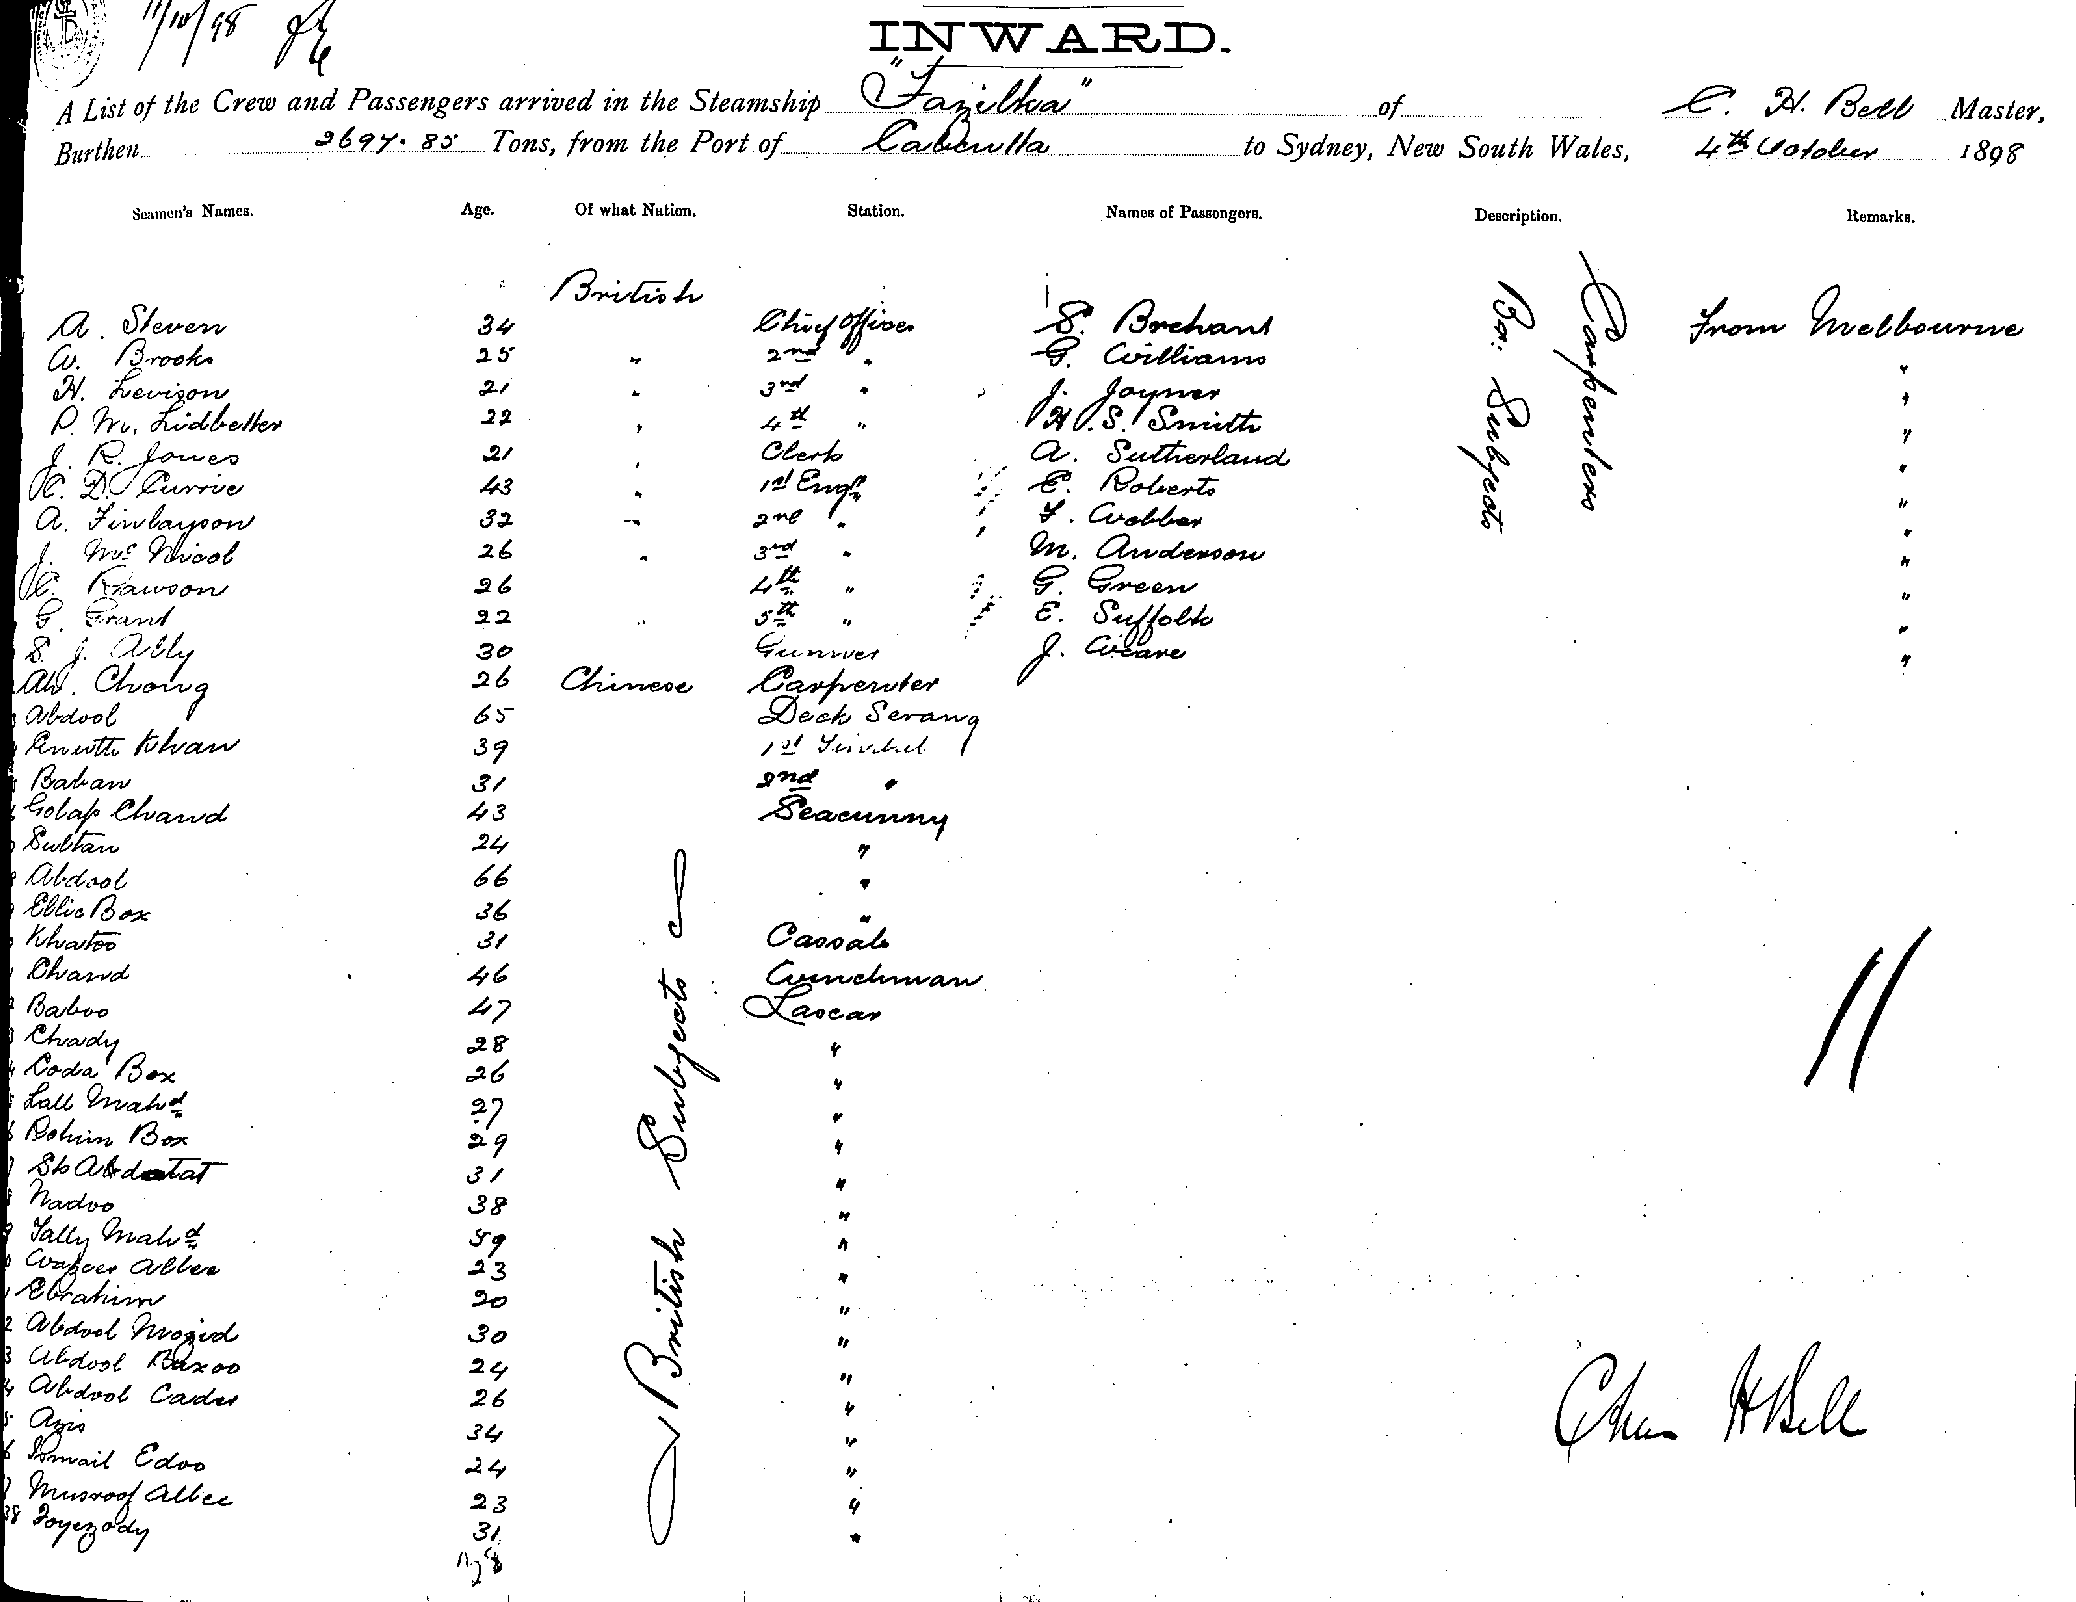 11/10/98
INWARD.
A List of the Crew and Passengers arrived in the Steamship "Fazilka" of C. H. Bell Master,
Burthen 2697.85 Tons, from the Port of Calcutta to Sydney, New South Wales, 4th October 1898
Seamen's Names. Age. Of what Nation. Station. Names of Passengers. Description. Remarks.
British
A. Steven 34 Chief Officer S. Brehant From Melbourne
W. Brooks 25 " 2nd " G. Williams "
H. Levison 21 " 3rd " J. Joyner "
P. M. Lidbetter 22 " 4th " H. S. Smith "
J. R. Jones 21 " Clerk A. Sutherland "
C. D. Currie 43 " 1st Engr. E. Roberts "
A. Finlayson 32 " 2nd " F. Webber "
J. McNicol 26 " 3rd " M. Anderson "
C. Rawson 26 4th " G. Green "
G. Grant 22 " 5th " E. Suffolk "
S. J. Ally 30 Gunner J. Weare "
Br. Subjects
Carpenters
Ah. Chong 26 Chinese Carpenter
Abdool 65 Deck Serang
Khan 39 1st Tindel
Baban 31 2nd "
Golap Chand 43 Seacunny
Sultan 24 "
Abdool 66 "
Ellie Box 36 "
Khatoo 31 Cassab
Chand 46 Winchman
Baboo 47 Lascar
Chady 28 "
Coda Box 26 "
Lall Mahd 27 "
Rohim Box 29 "
Sk 31 "
Nadoo 38 "
Tally Mahd 59 "
Wazeer Allee 23 "
Ebrahim 20 "
Abdool Mogid 30 "
Abdool Baxoo 24 "
Abdool Cader 26 "
Azis 34 "
Ismail Edoo 24 "
Musroof Allee 23 "
38 Foyezody 31 "
British Subjects
11
Chas H Bell